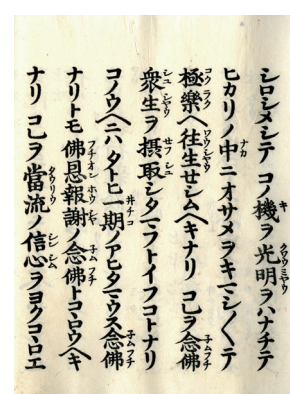 シロシメシテ コノ機ヲ光明ヲハナチテ
ヒカリノ中ニオサメヲキマシ〱テ
極樂ヘ往生セシムヘキナリ コレヲ念佛
衆生ヲ摂取シタマフトイフコトナリ
コノウヘニハタトヒ一期ノアヒタマウス念佛
ナリトモ 佛恩報謝ノ念佛トコヽロウヘキ
ナリ コレヲ當流ノ信心ヲヨクコヽロエ